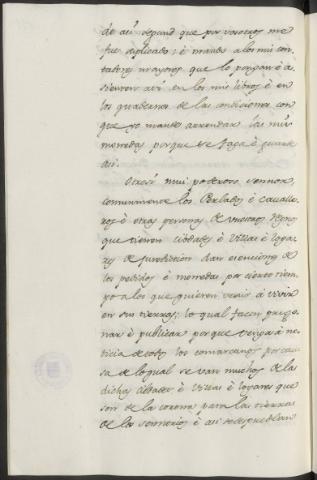 de asi segund que por vosotros me
fue suplicado; é mando alos mis con-
tadores mayores que lo pongan é a-
sienten asi en los mis libros é en
los quadernos de las condiciones con
que yo mando arrendar las mis
monedas porque se faga é guarde
asi.
Otrosi mui poderoso sennor,
comunmente los Perlados é cavalle-
ros é otras personas de vuestros regnos
que tienen cibdades é villas é loga-
res de jurediction dan esenciones de
los pedidos é monedas por cierto tiem-
po alos que quieren venir á vivir
en sus tierras; lo qual facen prego-
nar é publicar porque venga á no-
ticia de todos los comarcanos por cau-
sa de lo qual se van muchos de las
dichas cibdades é villas é logares que
son de la corona para las tierras
de los sennorios é asi se despueblan